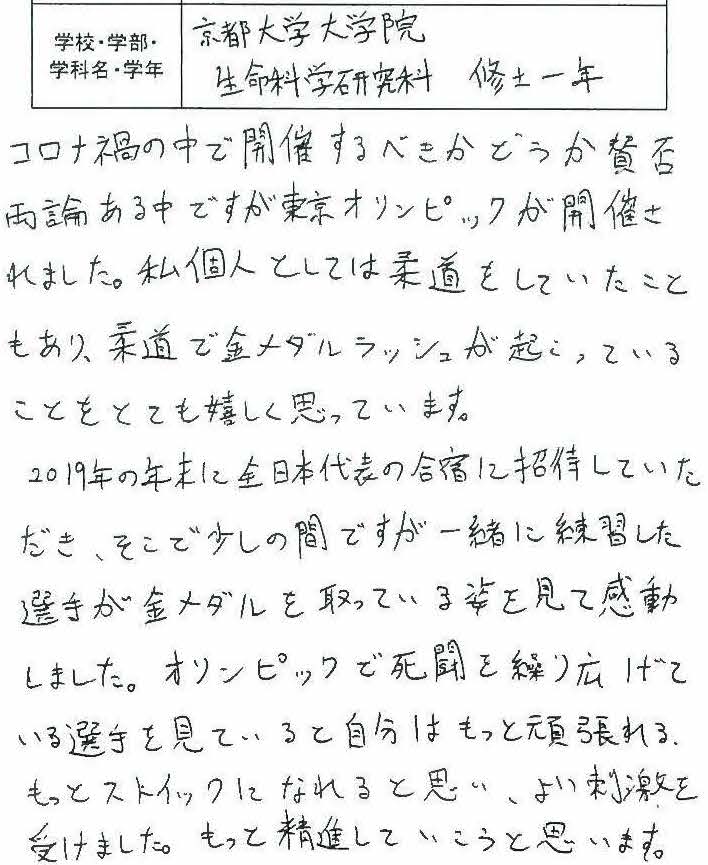 学校・学部・
学科名・学年
京都大学大学院
生命科学研究科 修士一年
コロナ禍の中で開催するべきかどうか賛否
両論ある中ですが東京オリンピックが開催さ
れました。私個人としては柔道をしていたこと
もあり、柔道で金メダルラッシュが起こっている
ことをとても嬉しく思っています。
2019年の年末に全日本代表の合宿に招待していた
だき、そこで少しの間ですが一緒に練習した
選手が金メダルを取っている姿を見て感動
しました。オリンピックで死闘を繰り広げて
いる選手を見ていると自分はもっと頑張れる、
もっとストイックになれると思い、よい刺激を
受けました。もっと精進していこうと思います。